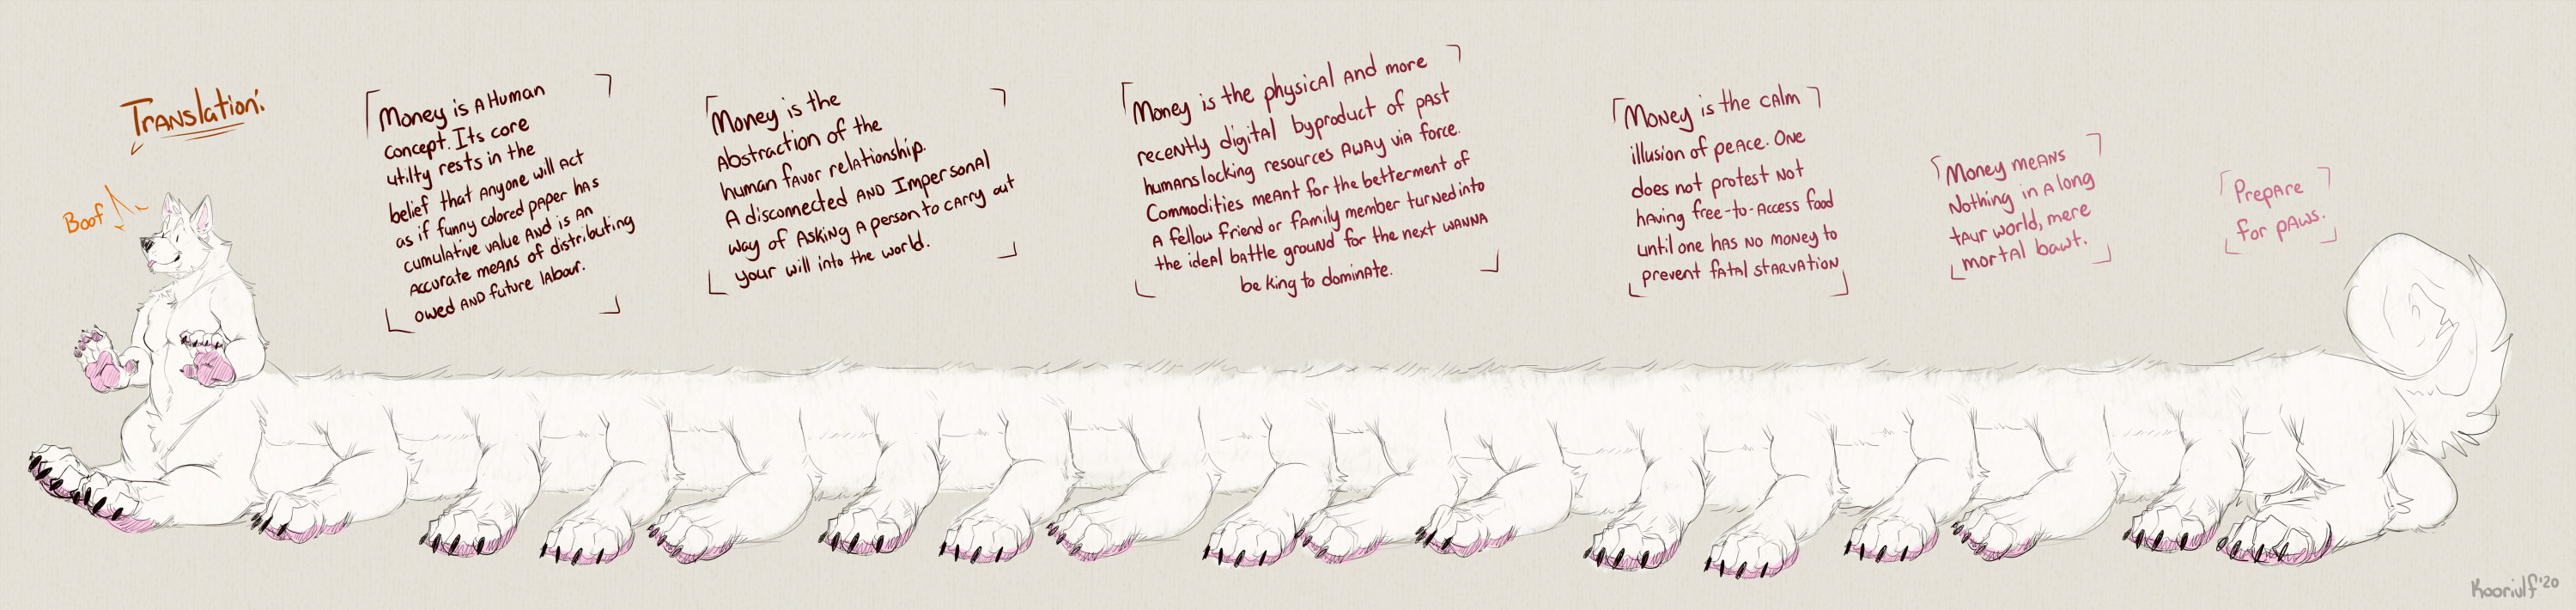 Boof
Translation:
Money is a Human
concept. Its core
utilty rests in the
belief that anyone will act
as if funny colored paper has
cumulative value and is an
accurate means of distributing
owed and future labour.
Money is the
Abstraction of the
human favor relationship.
A disconnected and Impersonal
way of asking a person to carry out
your will into the world.
Money is the physical and more
recently digital byproduct of past
humans locking resources away via force.
Commodities meant for the betterment of
a fellow friend or family member turned into
the ideal battle ground for the next wanna
be king to dominate.
Money is the calm
illusion of peace. One
does not protest not
having free-to-access food
until one has no money to
prevent fatal starvation
Money means
Nothing in a long
taur world, mere
mortal bawt.
Prepare
for paws.
Kooriulf '20